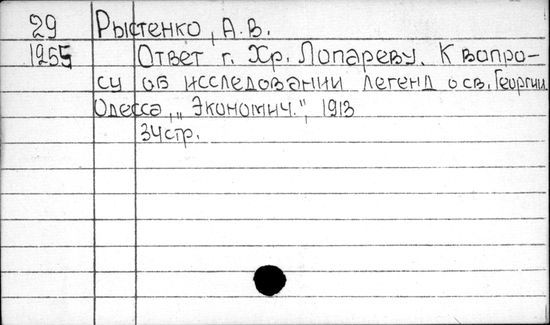 29 Рыстенко, А.В.
1255 Ответ г. Хр. Лопареву. К вопро-
су об исследовании легенд о св. Георгии
Одесса, „Экономич.", 1913
34стр.